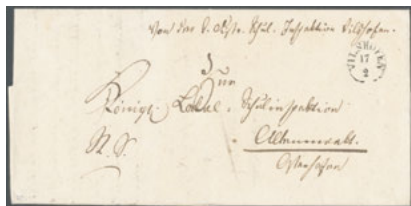 Von der K. Distr. Schul. Inspektion Vilshofen.
VILSHOFEN
17
2
Zur
Königl. Lokal. Schulinspektion
Altenmarkt.
R. S.
Osterhofen